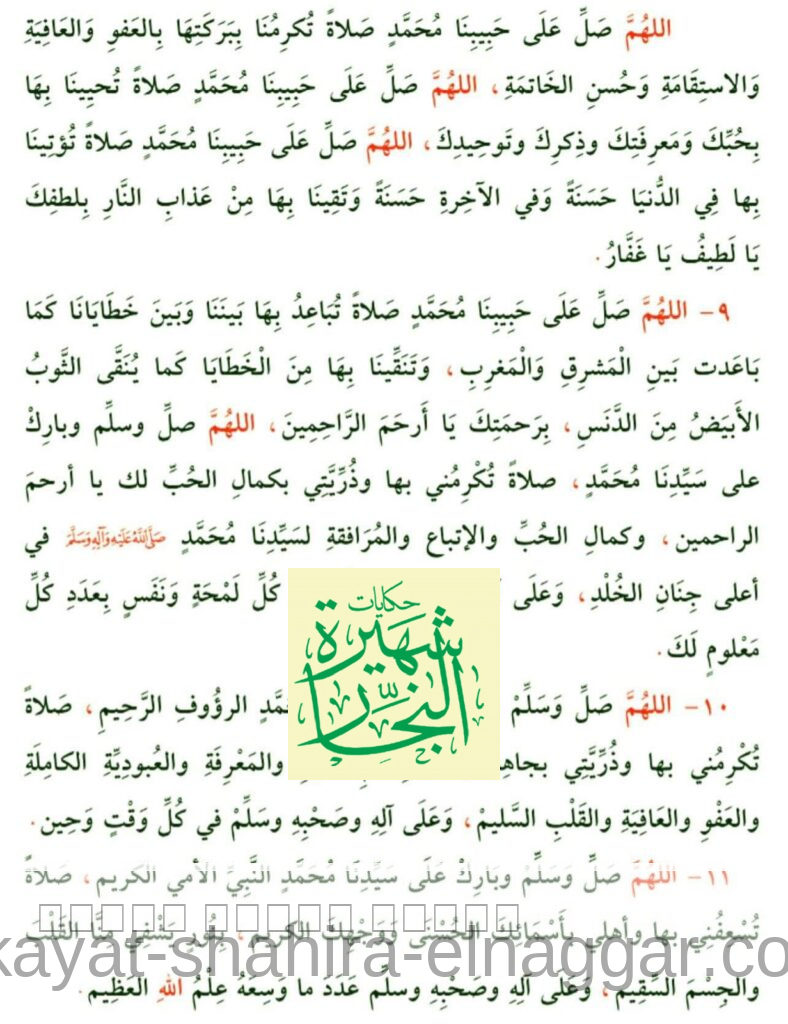 اللهُمَّ صَلِّ عَلَى حَبِيبِنَا مُحَمَّدٍ صَلاةً تُكرِمُنَا بِبَرَكَتِهَا بِالعَفوِ وَالعَافِيَةِ
وَالاستِقَامَةِ وَحُسنِ الخَاتمَةِ، اللهُمَّ صَلِّ عَلَى حَبِيبِنَا مُحَمَّدٍ صَلاةً تُحيِينَا بِهَا
بِحُبِّكَ وَمَعرِفَتِكَ وذِكرِكَ وتَوحِيدِكَ، اللهُمَّ صَلِّ عَلَى حَبِيبِنَا مُحَمَّدٍ صَلاةً تُؤتِينَا
بِها فِي الدُّنيَا حَسَنَةً وَفي الآخِرةِ حَسَنَةً وَتَقِينَا بِهَا مِنْ عَذابِ النَّارِ بِلطفِكَ
يَا لَطِيفُ يَا غَفَّارُ.
٩- اللهُمَّ صَلِّ عَلَى حَبِيبِنَا مُحَمَّدٍ صَلاةً تُبَاعِدُ بِهَا بَينَنَا وَبَينَ خَطَايَانَا كَمَا
بَاعَدت بَينِ الْمَشرِقِ وَالْمَغرِبِ، وَتَنَقِّينَا بِهَا مِنَ الْخَطَايَا كَما يُنَقَّى الثَّوبُ
الأَبيَضُ مِنَ الدَّنَسِ، بِرَحمَتِكَ يَا أَرحَمَ الرَّاحِمِينَ، اللهُمَّ صلِّ وسلِّم وبارِكْ
على سَيِّدِنَا مُحَمَّدٍ، صلاةً تُكْرِمُني بها وذُرِّيَّتِي بكمالِ الحُبِّ لك يا أرحمَ
الراحمين، وكمالِ الحُبِّ والإتباع والمُرَافقةِ لسَيِّدِنَا مُحَمَّدٍ صَلَّى اللَّهُ عَلَيْهِ وَآلِهِ وَسَلَّمَ في
أعلى جِنَانِ الخُلْدِ، وَعَلَى كُلِّ لَمْحَةٍ وَنَفَسٍ بِعَدَدِ كُلِّ
مَعْلومٍ لَكَ.
حكايات
شهيرة
النجار
١٠- اللهُمَّ صَلِّ وَسَلِّمْ الرؤُوفِ الرَّحِيمِ، صَلاةً
تُكْرِمُني بها وذُرِّيَّتِي بجاهِ والمَعْرِفَةِ والعُبودِيَّةِ الكامِلَةِ
والعَفْوِ والعَافِيَةِ والقَلْبِ السَّليمْ، وَعَلَى آلِهِ وصَحْبِهِ وسَلِّمْ في كُلِّ وَقْتٍ وَحِين.
١١- اللهُمَّ صَلِّ وَسَلِّمْ وبَارِكْ عَلَى سَيِّدِنَا مُحَمَّدٍ النَّبِيِّ الأمي الكريم، صَلاةً
تُسْعِفُنِي بها وأهلي بِأَسْمَائِكَ الحُسْنَى وَوَجْهِكَ الكريم، بِنُورٍ يَشْفِي مِنَّا القَلْبَ
kayat-shahira-elnaggar.co
والجِسْمَ السَّقِيم، وَعَلَى آلِهِ وصَحْبِهِ وسلِّم عَدَدَ ما وَسِعَهُ عِلْمُ اللهِ العَظِيم.